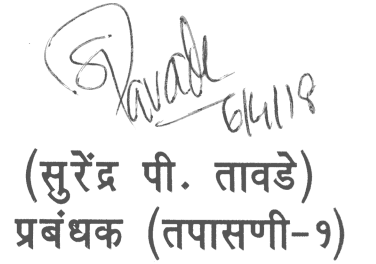 S Tavade
6/4/18
(सुरेंद्र पी. तावडे)
प्रबंधक (तपासणी-१)